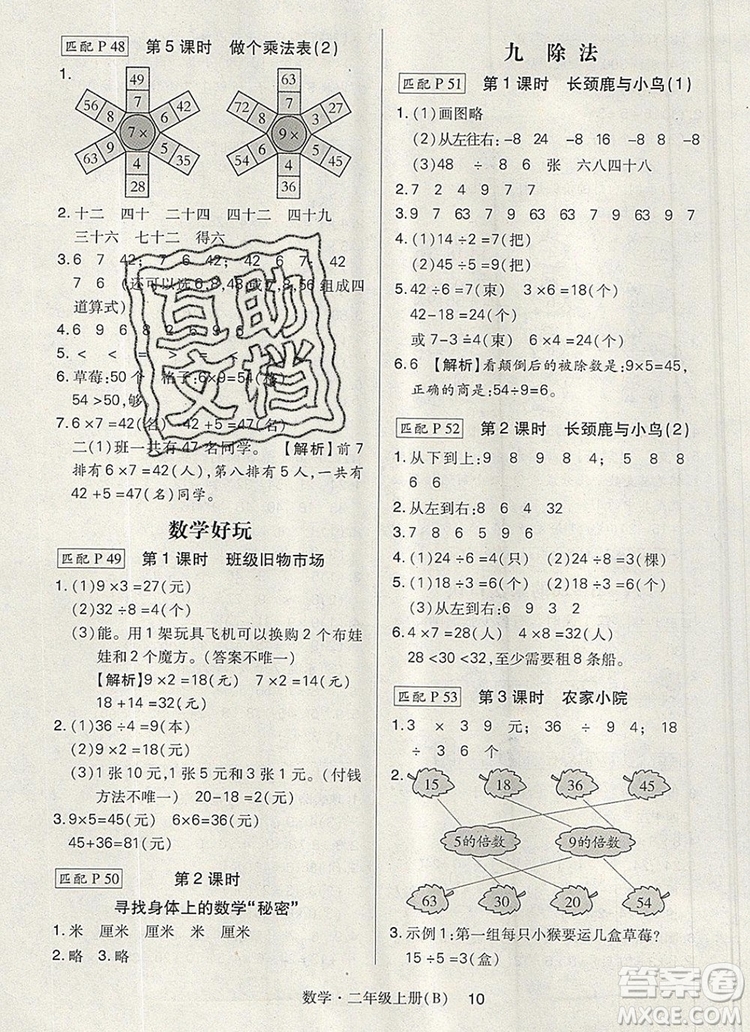 匹配 P 48 第 5 课时 做个乘法表(2)
1.
49 7 42 6 35 5 28 4 63 9 56 8 7 ×
63 7 54 6 45 5 36 4 81 9 72 8 9 ×
2.十二 四十 二十四 四十四 四十九
三十六 七十二 得六
3.6 7 42; 7 6 42; 42 6 7; 42
7 6 (还可以选 6,8,48或7,8,56 组成四
道算式)
4.6 9 6 8
5.< < <
6.草莓:50 个 格子:6×9=54(个)
54 >50,够
7.6×7 =42(名) 42 +5 =47(名)
二(1)班一共有 47 名同学。【解析】前 7
排有 6 ×7 =42(人),第八排有 5 人,一共有
42 +5 =47(名)同学。
数学好玩
匹配 P 49 第 1 课时 班级旧物市场
1.(1)9 ×3 =27(元)
(2)32 ÷8 =4(个)
(3)能。用 1 架玩具飞机可以换购 2 个布娃
娃和 2 个魔方。(答案不唯一)
【解析】9 ×2 =18(元) 7 ×2 =14(元)
18 +14 =32(元)
2.(1)36 ÷4 =9(本)
(2)9 ×2 =18(元)
(3)1 张 10 元,1 张 5 元,3 张 1 元。(付钱
方法不唯一) 20-18 =2(元)
3.9×5 =45(元) 6×6=36(元)
45+36 =81(元)
匹配 P 50 第 2 课时
寻找身体上的数学“秘密”
1.米 厘米 厘米 厘米 厘米 米
2.略 3.略
九 除 法
匹配 P 51 第 1 课时 长颈鹿与小鸟(1)
1.(1)画图略
(2)从左往右:-8 24 -8 -8 8 -8
(3)48 ÷ 8 6 张 六八四十八
2.7 2 7 4 7 1
3.9 7 63 7 9 63 63 7 9 63 9 7
4.(1)14 ÷2 =7(把)
(2)45 ÷9 =5(把)
5.42 ÷6 =7(束) 3×6 =18(个)
42-18 =24(个)
或 7-3 =4(束) 4×6 =24(个)
6.6 【解析】看颠倒后的被除数是:9×5=45,
正确的商是:54÷9=6。
匹配 P 52 第 2 课时 长颈鹿与小鸟(2)
1.从下到上: 9 8 9 8 4; 5 4 8
6 6
2.从左到右: 8 6 4 32
3.7 8 6 5 9 6 6
4.(1)24 ÷6 =4(只) (2)24 ÷8 =3(棵)
5.(1)从左到右: 9 6 8 2 7
6.4 ×7 =28(人) 4 ×8 =32(人)
28 <30 <32,至少需要租 8 条船。
匹配 P 53 第 3 课时 农家小院
1.3 × 3 9 元; 36 ÷ 9 4; 18
÷ 3 6 个
2.
15 18 36 45
5的倍数 9的倍数
63 20 30 54
3.示例 1:第一组每只小猴要运几盒草莓?
15 ÷5 =3(盒)
互助
文档
数学·二年级上册(B) 10
答案圈
MXQE.COM